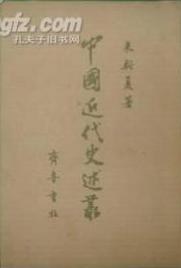 gfz.com
孔夫子旧书网
来新夏著
中國近代史述叢
齊魯書社